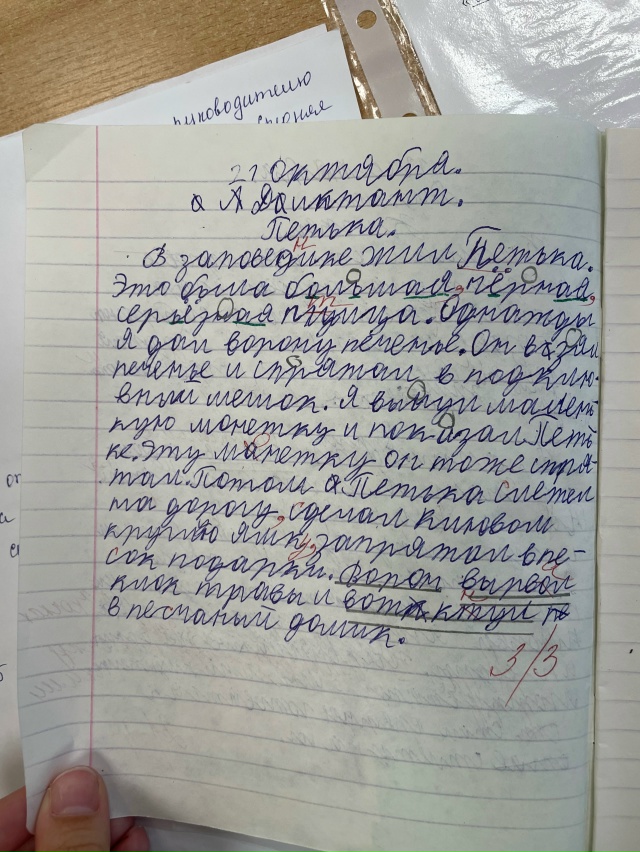 руководителю
21 октября.
Диктант.
Петька.
В заповедике жил Петька.
Это была большая, чёрная,
серьёзная птица. Однажды
я дал ворону печенье. Он взял
печенье и спрятал в подклю-
вный мешок. Я вынул малень
кую монетку и показал Петь
ке. Эту манетку он тоже спря-
тал. Потом Петька слетел
на дорогу, сделал клювом
круглю ямку, запрятал в пе-
сок подарки. Ворон вырвал
клок травы и воткнул
в песчаный домик.
3/3